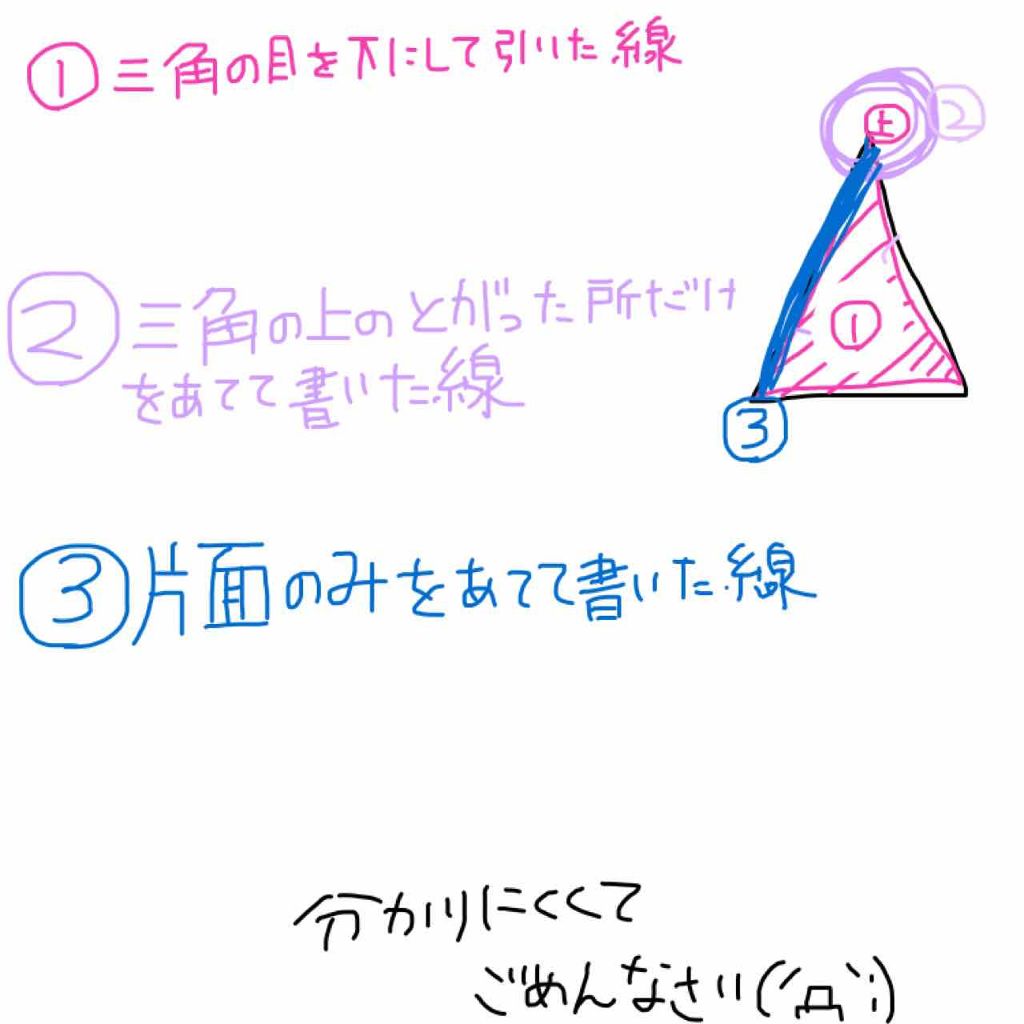 ① 三角の目を下にして引いた線
上
②
② 三角の上のとがった所だけ
をあてて書いた線
①
③
③ 片面のみをあてて書いた線
分かりにくくて
ごめんなさい(´Д`;)